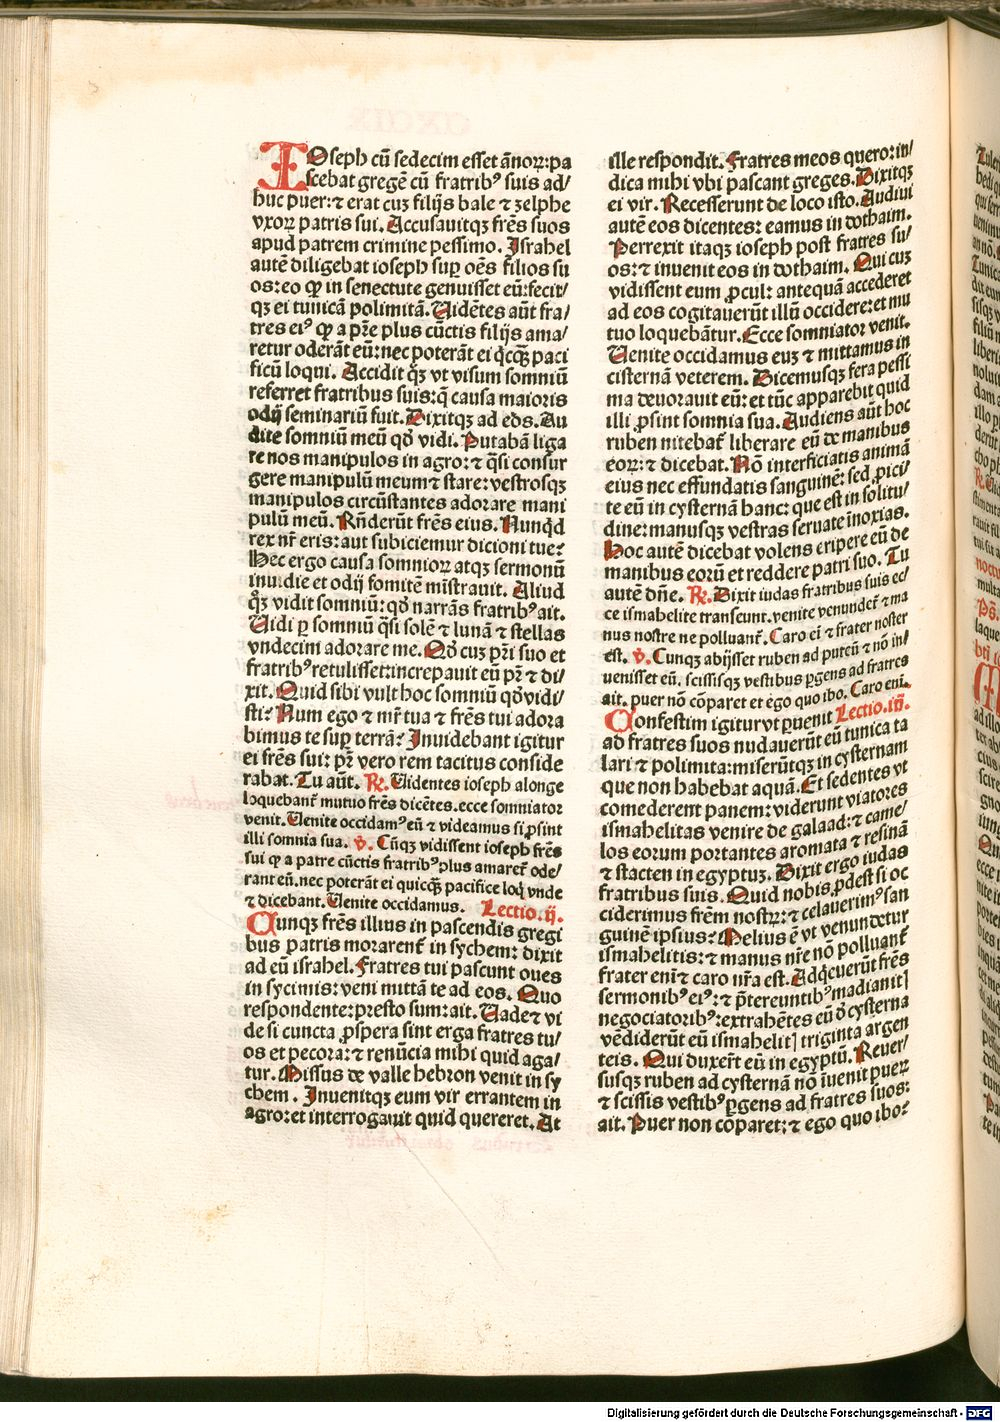 IOseph cū sedecim esset ānoꝝ: pa
scebat gregē cū fratribꝰ suis ad/
huc puer: ⁊ erat cuꝫ filijs bale ⁊ zelphe
vxoꝝ patris sui. Accusauitqꝫ frēs suos
apud patrem crimine pessimo. Israhel
autē diligebat ioseph suꝑ oēs filios su
os: eo ꝙ in senectute genuisset eū: fecit/
qꝫ ei tunicā polimitā. Uidētes aūt fra/
tres eiꝰ ꝙ a pr̄e plus cūctis filijs ama/
retur oderāt eū: nec poterāt ei q̇cq̄ꝫ paci
ficū loqui. Accidit q̄ꝫ vt visum somniū
referret fratribus suis: q̄ causa maioris
odij seminariū fuit. Dixitqꝫ ad eos. Au
dite somniū meū qḋ vidi. Putabā liga
re nos manipulos in agro: ⁊ q̄si consur
gere manipulū meum ⁊ stare: vestrosqꝫ
manipulos circūstantes adorare mani
pulū meū. Rn̄derūt frēs eius. Nunq̇d
rex nr̄ eris: aut subiciemur dicioni tue?
Hec ergo causa somnioꝝ atqꝫ sermonū
inuidie et odij fomitē mīstrauit. Aliud
q̄ꝫ vidit somniū: qḋ narrās fratribꝰ ait.
Uidi ꝑ somniū q̄si solē ⁊ lunā ⁊ stellas
vndecim adorare me. Qḋ cuꝫ pr̄i suo et
fratribꝰ retulisset: increpauit eū pr̄ ⁊ di/
xit. Quid sibi vult hoc somniū qḋ vidi/
sti? Num ego ⁊ mr̄ tua ⁊ frēs tui adora
bimus te suꝑ terrā? Inuidebant igitur
ei frēs sui: pr̄ vero rem tacitus conside
rabat. Tu aūt. ℞. Uidentes ioseph alonge
loquebant̄ mutuo frēs dicētes. ecce somniator
venit. Uenite occidamꝰ eū ⁊ videamus si ꝓsint
illi somnia sua. ℣. Cūqꝫ vidissent ioseph frēs
sui ꝙ a patre cūctis fratribꝰ plus amaret̄ ode/
rant eū. nec poterāt ei quicq̄ꝫ pacifice loq̇ vnde
⁊ dicebant. Uenite occidamus. Lectio. ij.
Cunqꝫ frēs illius in pascendis gregi
bus patris morarent̄ in sychem: dixit
ad eū israhel. Fratres tui pascunt oues
in sycimis: veni mittā te ad eos. Quo
respondente: presto sum: ait. Uade ⁊ vi
de si cuncta ꝓspera sint erga fratres tu/
os et pecora: ⁊ renūcia mihi quid aga/
tur. Missus de valle hebron venit in sy
chem. Inuenitqꝫ eum vir errantem in
agro: et interrogauit quid quereret. At
ille respondit. Fratres meos quero: in/
dica mihi vbi pascant greges. Dixitqꝫ
ei vir. Recesserunt de loco isto. Audiui
autē eos dicentes: eamus in dothaim.
Perrexit itaqꝫ ioseph post fratres su/
os: ⁊ inuenit eos in dothaim. Qui cuꝫ
vidissent eum ꝓcul: antequā accederet
ad eos cogitauerūt illū occidere: et mu
tuo loquebāntur. Ecce somniator venit.
Uenite occidamus euꝫ ⁊ mittamus in
cisternā veterem. Dicemusqꝫ fera pessi
ma deuorauit eū: et tūc apparebit quid
illi ꝓsint somnia sua. Audiens aūt hoc
ruben nitebat̄ liberare eū de manibus
eoꝝ: ⁊ dicebat. Nō interficiatis animā
eius nec effundatis sanguinē: sed ꝓici/
te eū in cysternā hanc: que est in solitu/
dine: manusqꝫ vestras seruate īnoxias.
Hoc autē dicebat volens eripere eū de
manibus eorū et reddere patri suo. Tu
autē dn̄e. ℞. Dixit iudas fratribus suis ec/
ce ismahelite transeunt. venite venundet̄ ⁊ ma
nus nostre ne polluant̄. Caro ei̅ ⁊ frater noster
est. ℣. Cunqꝫ abijsset ruben ad puteū ⁊ nō in/
uenisset eū. scissisqꝫ vestibus ꝑgens ad fratres
ait. puer nō cōparet et ego quo ibo. Caro eni̅.
Confestim igitur vt ꝑuenit Lectio. iij.
ad fratres suos nudauerūt eū tunica ta
lari ⁊ polimita: miserūtqꝫ in cysternam
que non habebat aquā. Et sedentes vt
comederent panem: viderunt viatores
ismahelitas venire de galaad: ⁊ came/
los eorum portantes aromata ⁊ resinā
⁊ stacten in egyptuꝫ. Dixit ergo iudas
fratribus suis. Quid nobis ꝓdest si oc
ciderimus frēm nostrꝫ: ⁊ celauerimꝰ san
guinē ipsius? Melius ē vt venundetur
ismahelitis: ⁊ manus nr̄e nō polluant̄
frater eni̅ ⁊ caro nr̄a est. Adq̇euerūt frēs
sermonibꝰ eiꝰ: ⁊ p̄tereuntibꝰ madianit]
negociatoribꝰ: extrahētes eū ḋ cysterna
vēdiderūt eū ismahelit] triginta argen
teis. Qui duxer̄t eū in egyptū. Reuer/
susqꝫ ruben ad cysternā nō īuenit pueꝝ
⁊ scissis vestibꝰ ꝑgens ad fratres suos:
ait. Puer non cōparet: ⁊ ego quo ibo?
Digitalisierung gefördert durch die Deutsche Forschungsgemeinschaft - DFG